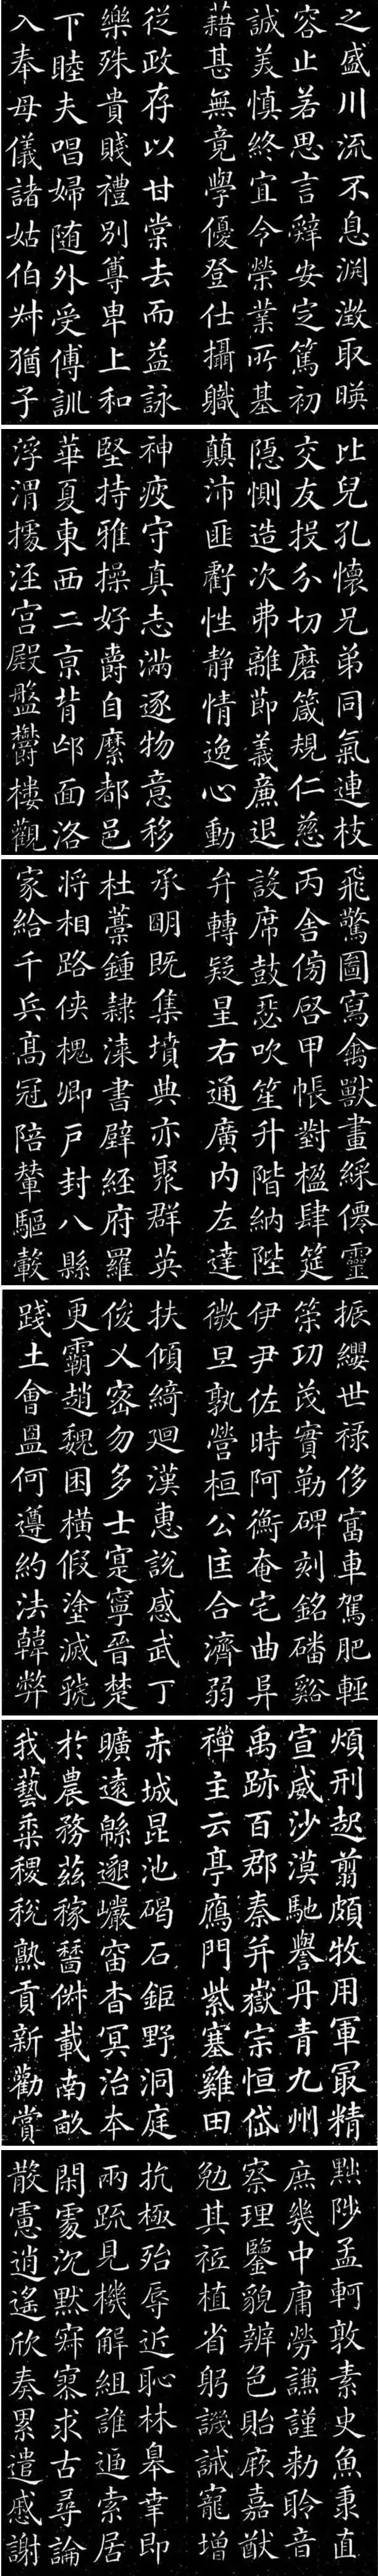 之盛川流不息淵澂取暎
容止若思言辭安定篤初
誠美慎終宜令榮業所基
藉甚無竟學優登仕攝職
從政存以甘棠去而益詠
樂殊貴賤禮別尊卑上和
下睦夫唱婦随外受傅訓
入奉母儀諸姑伯叔猶子
比兒孔懷兄弟同氣連枝
交友投分切磨箴規仁慈
隱惻造次弗離節義廉退
顛沛匪虧性靜情逸心動
神疲守真志滿逐物意移
堅持雅操好爵自縻都邑
華夏東西二京背邙面洛
浮渭據涇宮殿盤鬱樓觀
飛驚圖寫禽獸畫綵僊靈
丙舍傍啓甲帳對楹肆筵
設席鼓瑟吹笙升階納陛
弁轉疑星右通廣内左達
承明既集墳典亦聚群英
杜藁鍾隸漆書壁經府羅
將相路俠槐卿戶封八縣
家給千兵高冠陪輦驅轂
振纓世祿侈富車駕肥輕
策功茂實勒碑刻銘磻谿
伊尹佐時阿衡奄宅曲阜
微旦孰營桓公匡合濟弱
扶傾綺迴漢惠說感武丁
俊乂密勿多士寔寧晉楚
更霸趙魏困橫假塗滅虢
踐土會盟何遵約法韓弊
煩刑起翦頗牧用軍最精
宣威沙漠馳譽丹青九州
禹跡百郡秦并嶽宗恒岱
禪主云亭鴈門紫塞雞田
赤城昆池碣石鉅野洞庭
曠遠緜邈巖岫杳冥治本
於農務茲稼穡俶載南畝
我藝黍稷稅熟貢新勸賞
黜陟孟軻敦素史魚秉直
庶幾中庸勞謙謹勑聆音
察理鑒貌辨色貽厥嘉猷
勉其祗植省躬譏誡寵增
抗極殆辱近恥林皋幸即
兩疏見機解組誰逼索居
閑處沉默寂寥求古尋論
散慮逍遙欣奏累遣慼謝